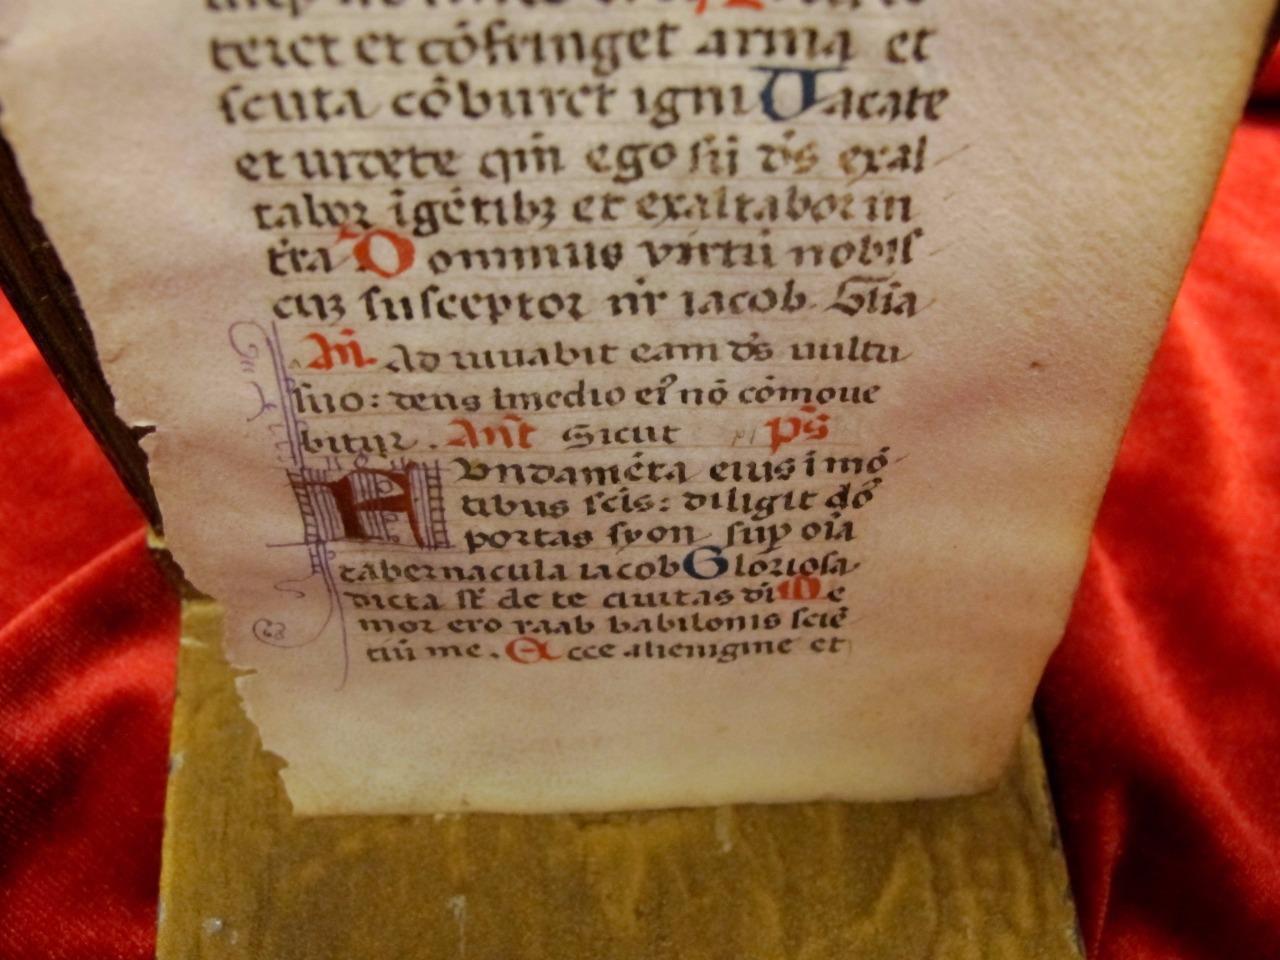 teret et cõfringet arma et
scuta cõburet igni Uacate
et uidete qm̄ ego sũ ds̄ exal
tabor ĩgẽtibꝫ et exaltabor in
tr̃a Dominus virtũ nobis
cũ susceptor nr̄ iacob Gl̄ia
An̄. Adiuuabit eam ds̄ uultu
suo: deus ĩ medio eiꝰ nõ cõmoue
bitur. Ant̃ Sicut ps̄
Fundamẽta eius ĩ mõ
tibus scĩs: diligit dõ
portas syon sup oĩa
tabernacula iacob Gloriosa
dicta st̃ de te ciuitas dĩ Me
mor ero raab babilonis sciẽ
tiũ me. Ecce alienigine et